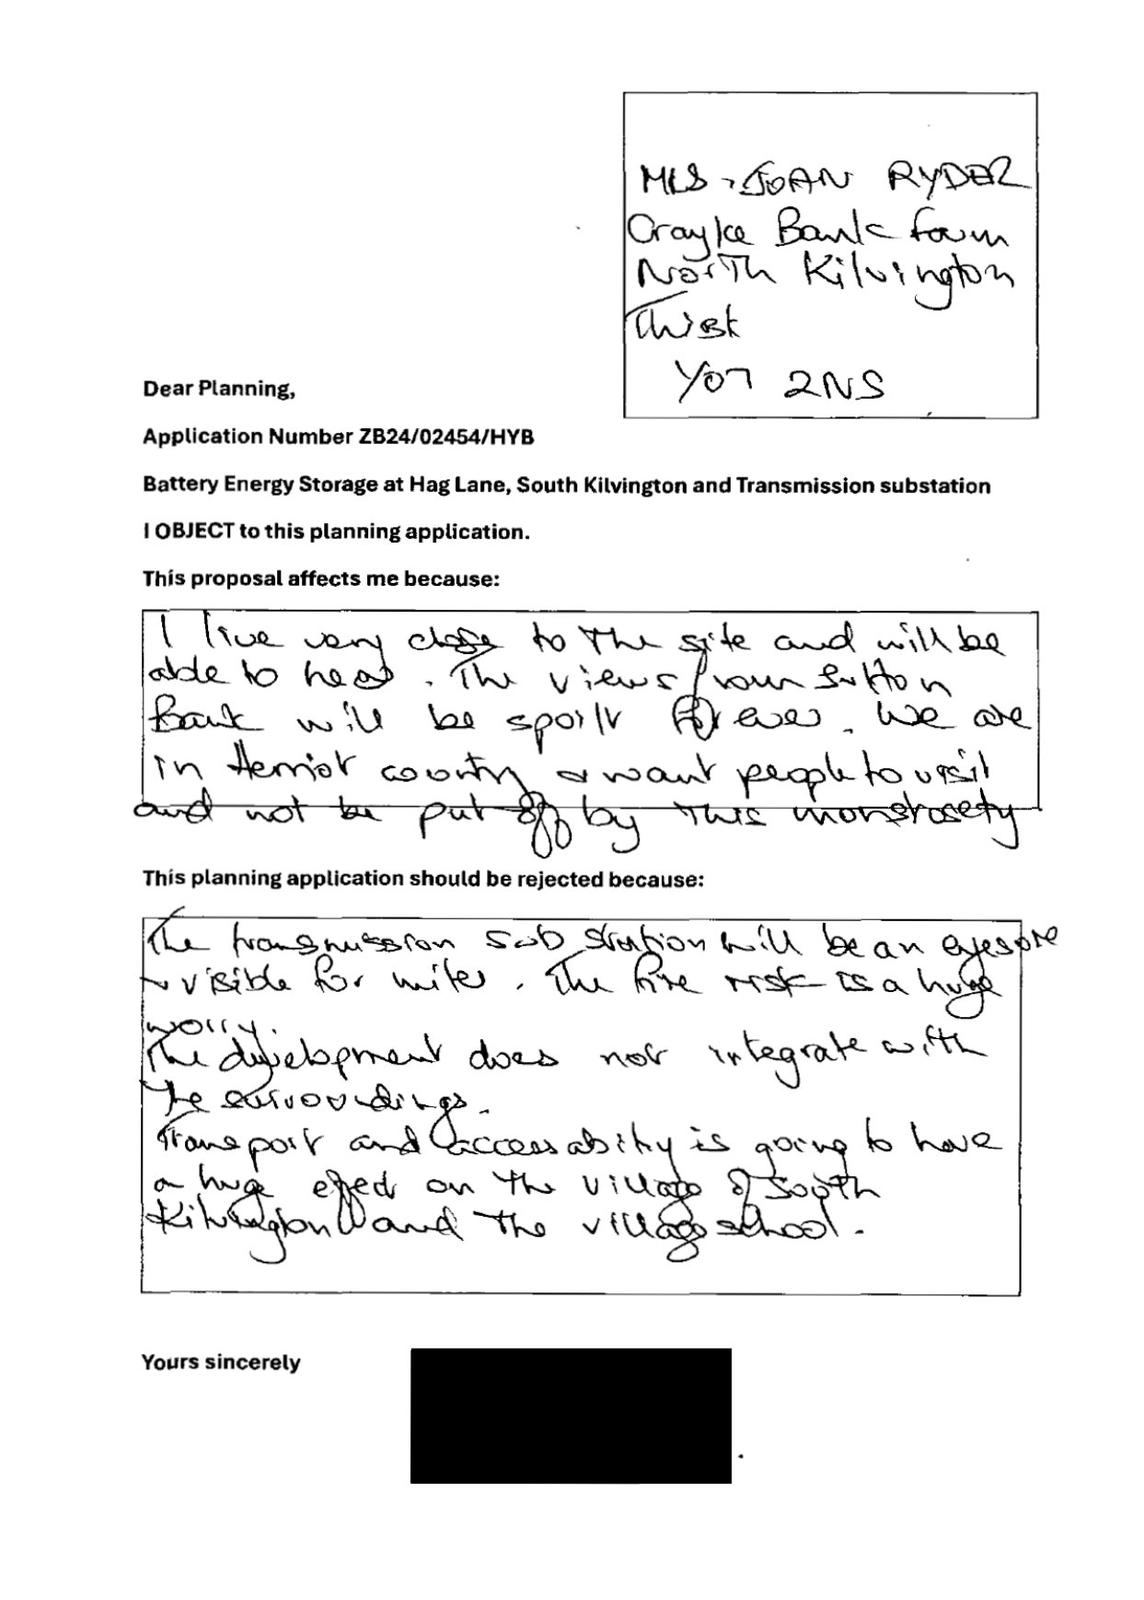 MRS. JOAN RYDER
Crayke Bank farm
North Kilvington
Thisk
YO7 2NS
Dear Planning,
Application Number ZB24/02454/HYB
Battery Energy Storage at Hag Lane, South Kilvington and Transmission substation
I OBJECT to this planning application.
This proposal affects me because:
I live very close to the site and will be
able to hear. The views from Sutton
Bank will be spoilt for ever. We are
in Herriot country & want people to visit
and not be put off by this monstrosety
This planning application should be rejected because:
The transmission sub station will be an eyesore
& visible for miles. The fire risk is a huge
worry.
The development does not integrate with
the surroundings.
Transport and accessability is going to have
a huge effect on the village of South
Kilvington and the village school.
Yours sincerely